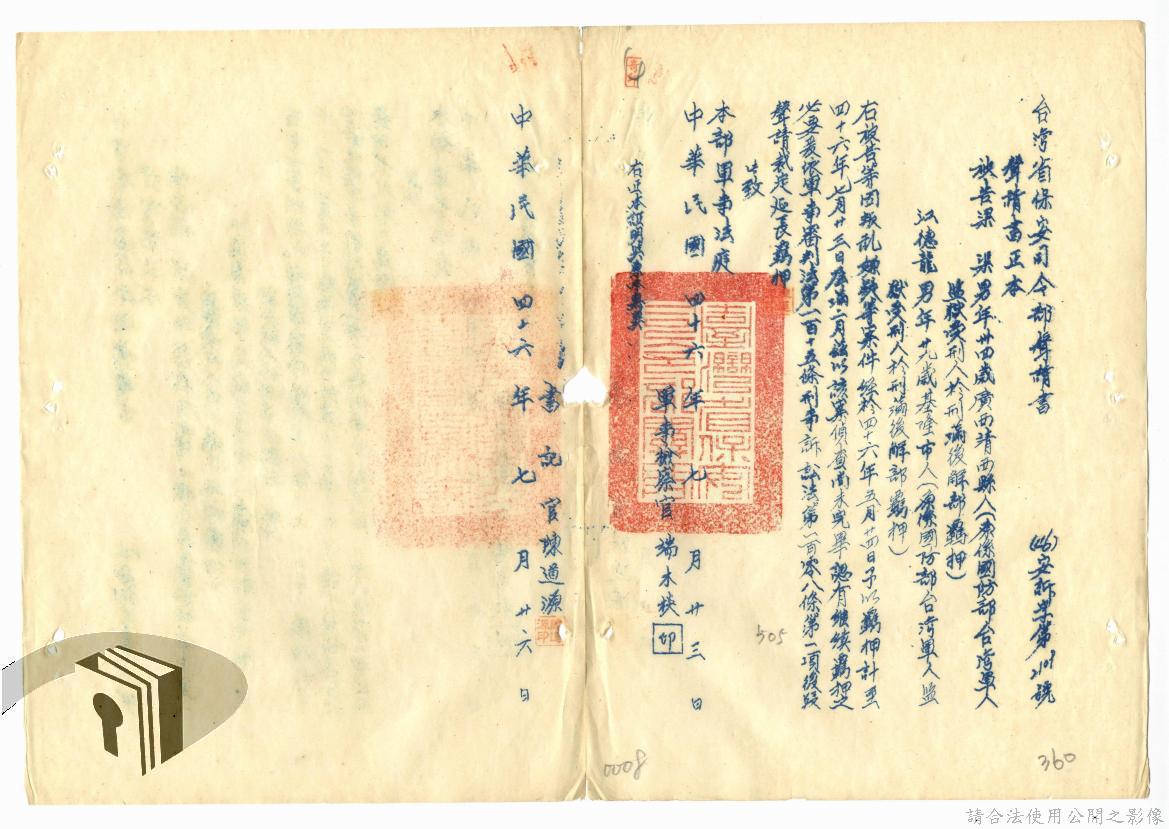 台湾省保安司令部聲請書
(46)安訴字第2109號
聲請書正本
被告梁 渠男年卅四歲廣西靖西縣人(原係國防部台湾軍人
監獄受刑人於刑滿後解部羈押)
江德龍男年廿九歲基隆市人(原係國防部台湾軍人監
獄受刑人於刑滿後解部羈押)
右被告等因叛乱嫌疑等案件經於四十六年五月廿四日予以羈押計至
四十六年七月廿三日届滿二月玆以該案偵查尚未完畢認有继續羈押之
必要爰依軍事審判法第一百十五條刑事訴訟法第一百零八條第一項後段
聲請裁定延長羈押
此致
本部軍事法庭
中華民國四十六年七月廿三日
軍事檢察官 端木棪 印
右正本証明與原本無異
書記官 陳道源
中華民國四十六年七月廿六日
505
0008
360
請合法使用公開之影像